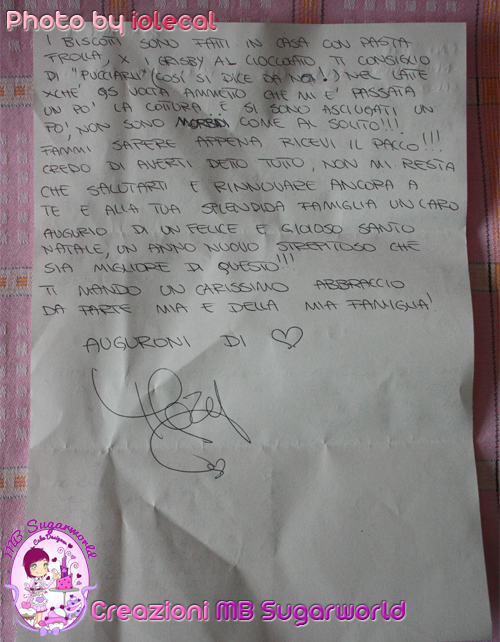 Photo by iolecal
I BISCOTTI SONO FATTI IN CASA CON PASTA
FROLLA, X I GRISBY AL CIOCCOLATO, TI CONSIGLIO
DI "PUCCIARLI" (COSÌ SI DICE DA NOI!) NEL LATTE
XCHÉ QS VOLTA AMMETTO CHE MI E' PASSATA
UN PO' LA COTTURA... E SI SONO ASCIUGATI UN
PO', NON SONO MORBIDI COME AL SOLITO!!!
FAMMI SAPERE APPENA RICEVI IL PACCO!!!
CREDO DI AVERTI DETTO TUTTO, NON MI RESTA
CHE SALUTARTI E RINNOVARE ANCORA A
TE E ALLA TUA SPLENDIDA FAMIGLIA UN CARO
AUGURIO DI UN FELICE E GIOIOSO SANTO
NATALE, UN ANNO NUOVO STREPITOSO CHE
SIA MIGLIORE DI QUESTO!!!
TI MANDO UN CARISSIMO ABBRACCIO
DA PARTE MIA E DELLA MIA FAMIGLIA!
AUGURONI DI
MB Sugarworld
Cake Designer
Creazioni MB Sugarworld